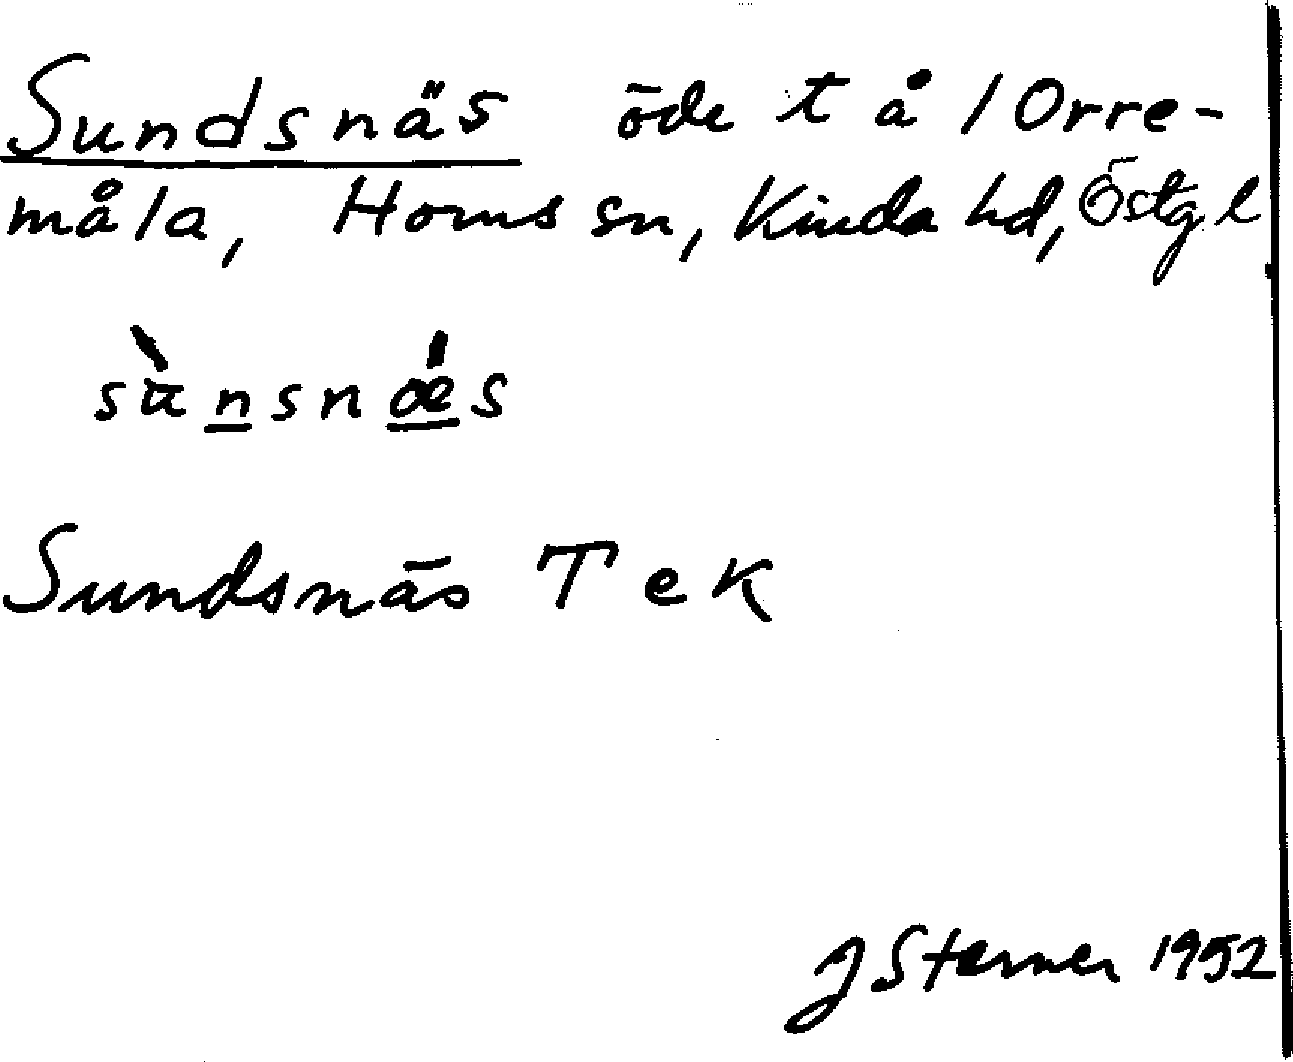 Sundsnäs öde t å 1 Orre-
måla, Horns sn, Kinda hd, Östgl
sùnsnǽs
Sundsnäs T ek
J Sterner 1952